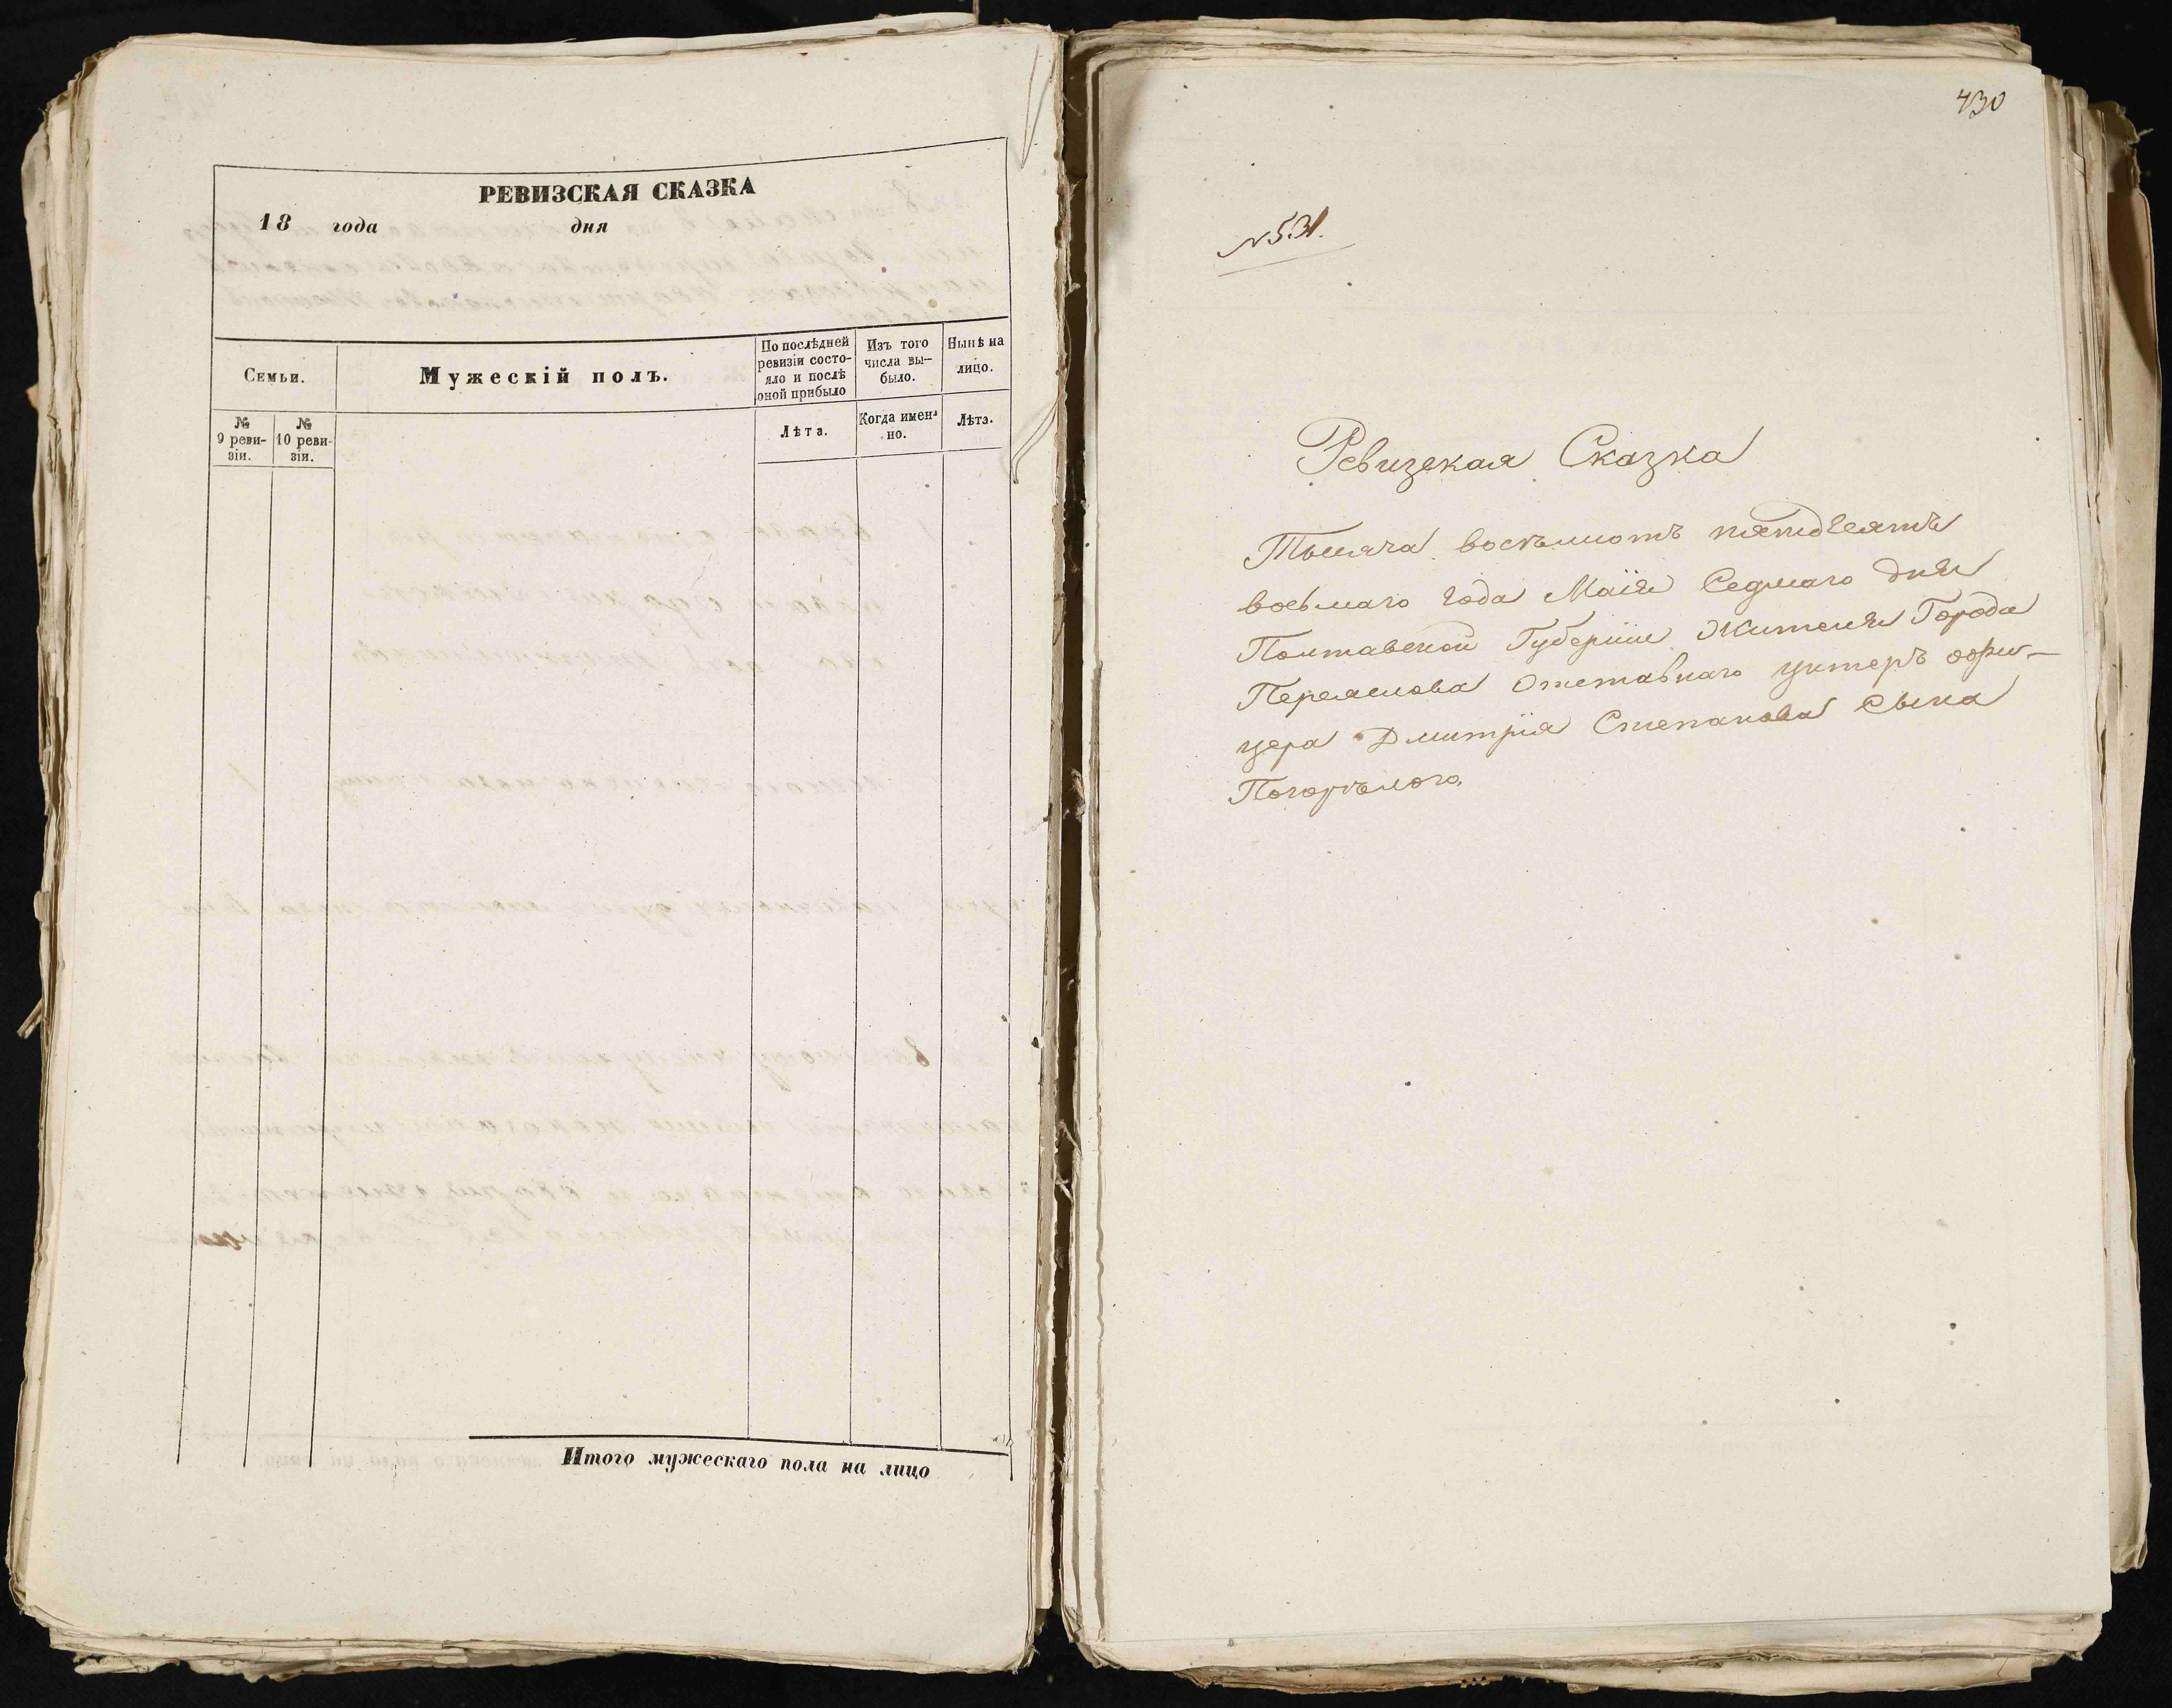 РЕВИЗСКАЯ СКАЗКА
18 года дня
Семьи.
Мужескій полъ.
По послѣдней
ревизіи состо-
яло и послѣ
оной прибыло
Изъ того
числа вы-
было.
Нынѣ на
лицо.
№
9 реви-
зіи.
№
10 реви-
зіи.
Лѣта.
Когда имен-
но.
Лѣта.
Итого мужескаго пола на лицо
430
№531.
Ревизская Сказка
Тысяча восѣмьсотъ пятьдесятъ
восьмаго года Маія Седмаго дня
Полтавской Губерніи Жителя Города
Переяслова Отставнаго унтеръ офи-
цера Дмитрія Степанова сына
Погорѣлого.